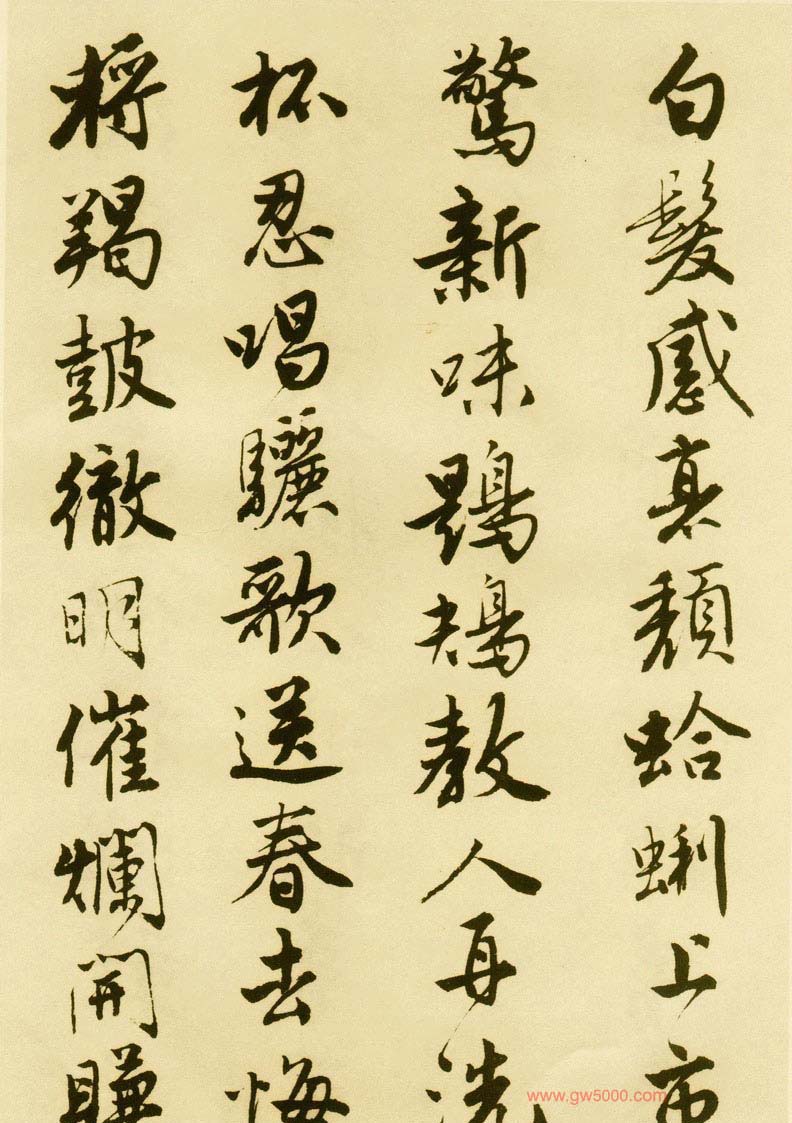 白髮感衰頹蛤蜊上市
驚新味鶗鴂教人再洗
杯忍唱驪歌送春去悔
將羯鼓徹明催爛開賺
www.gw5000.com